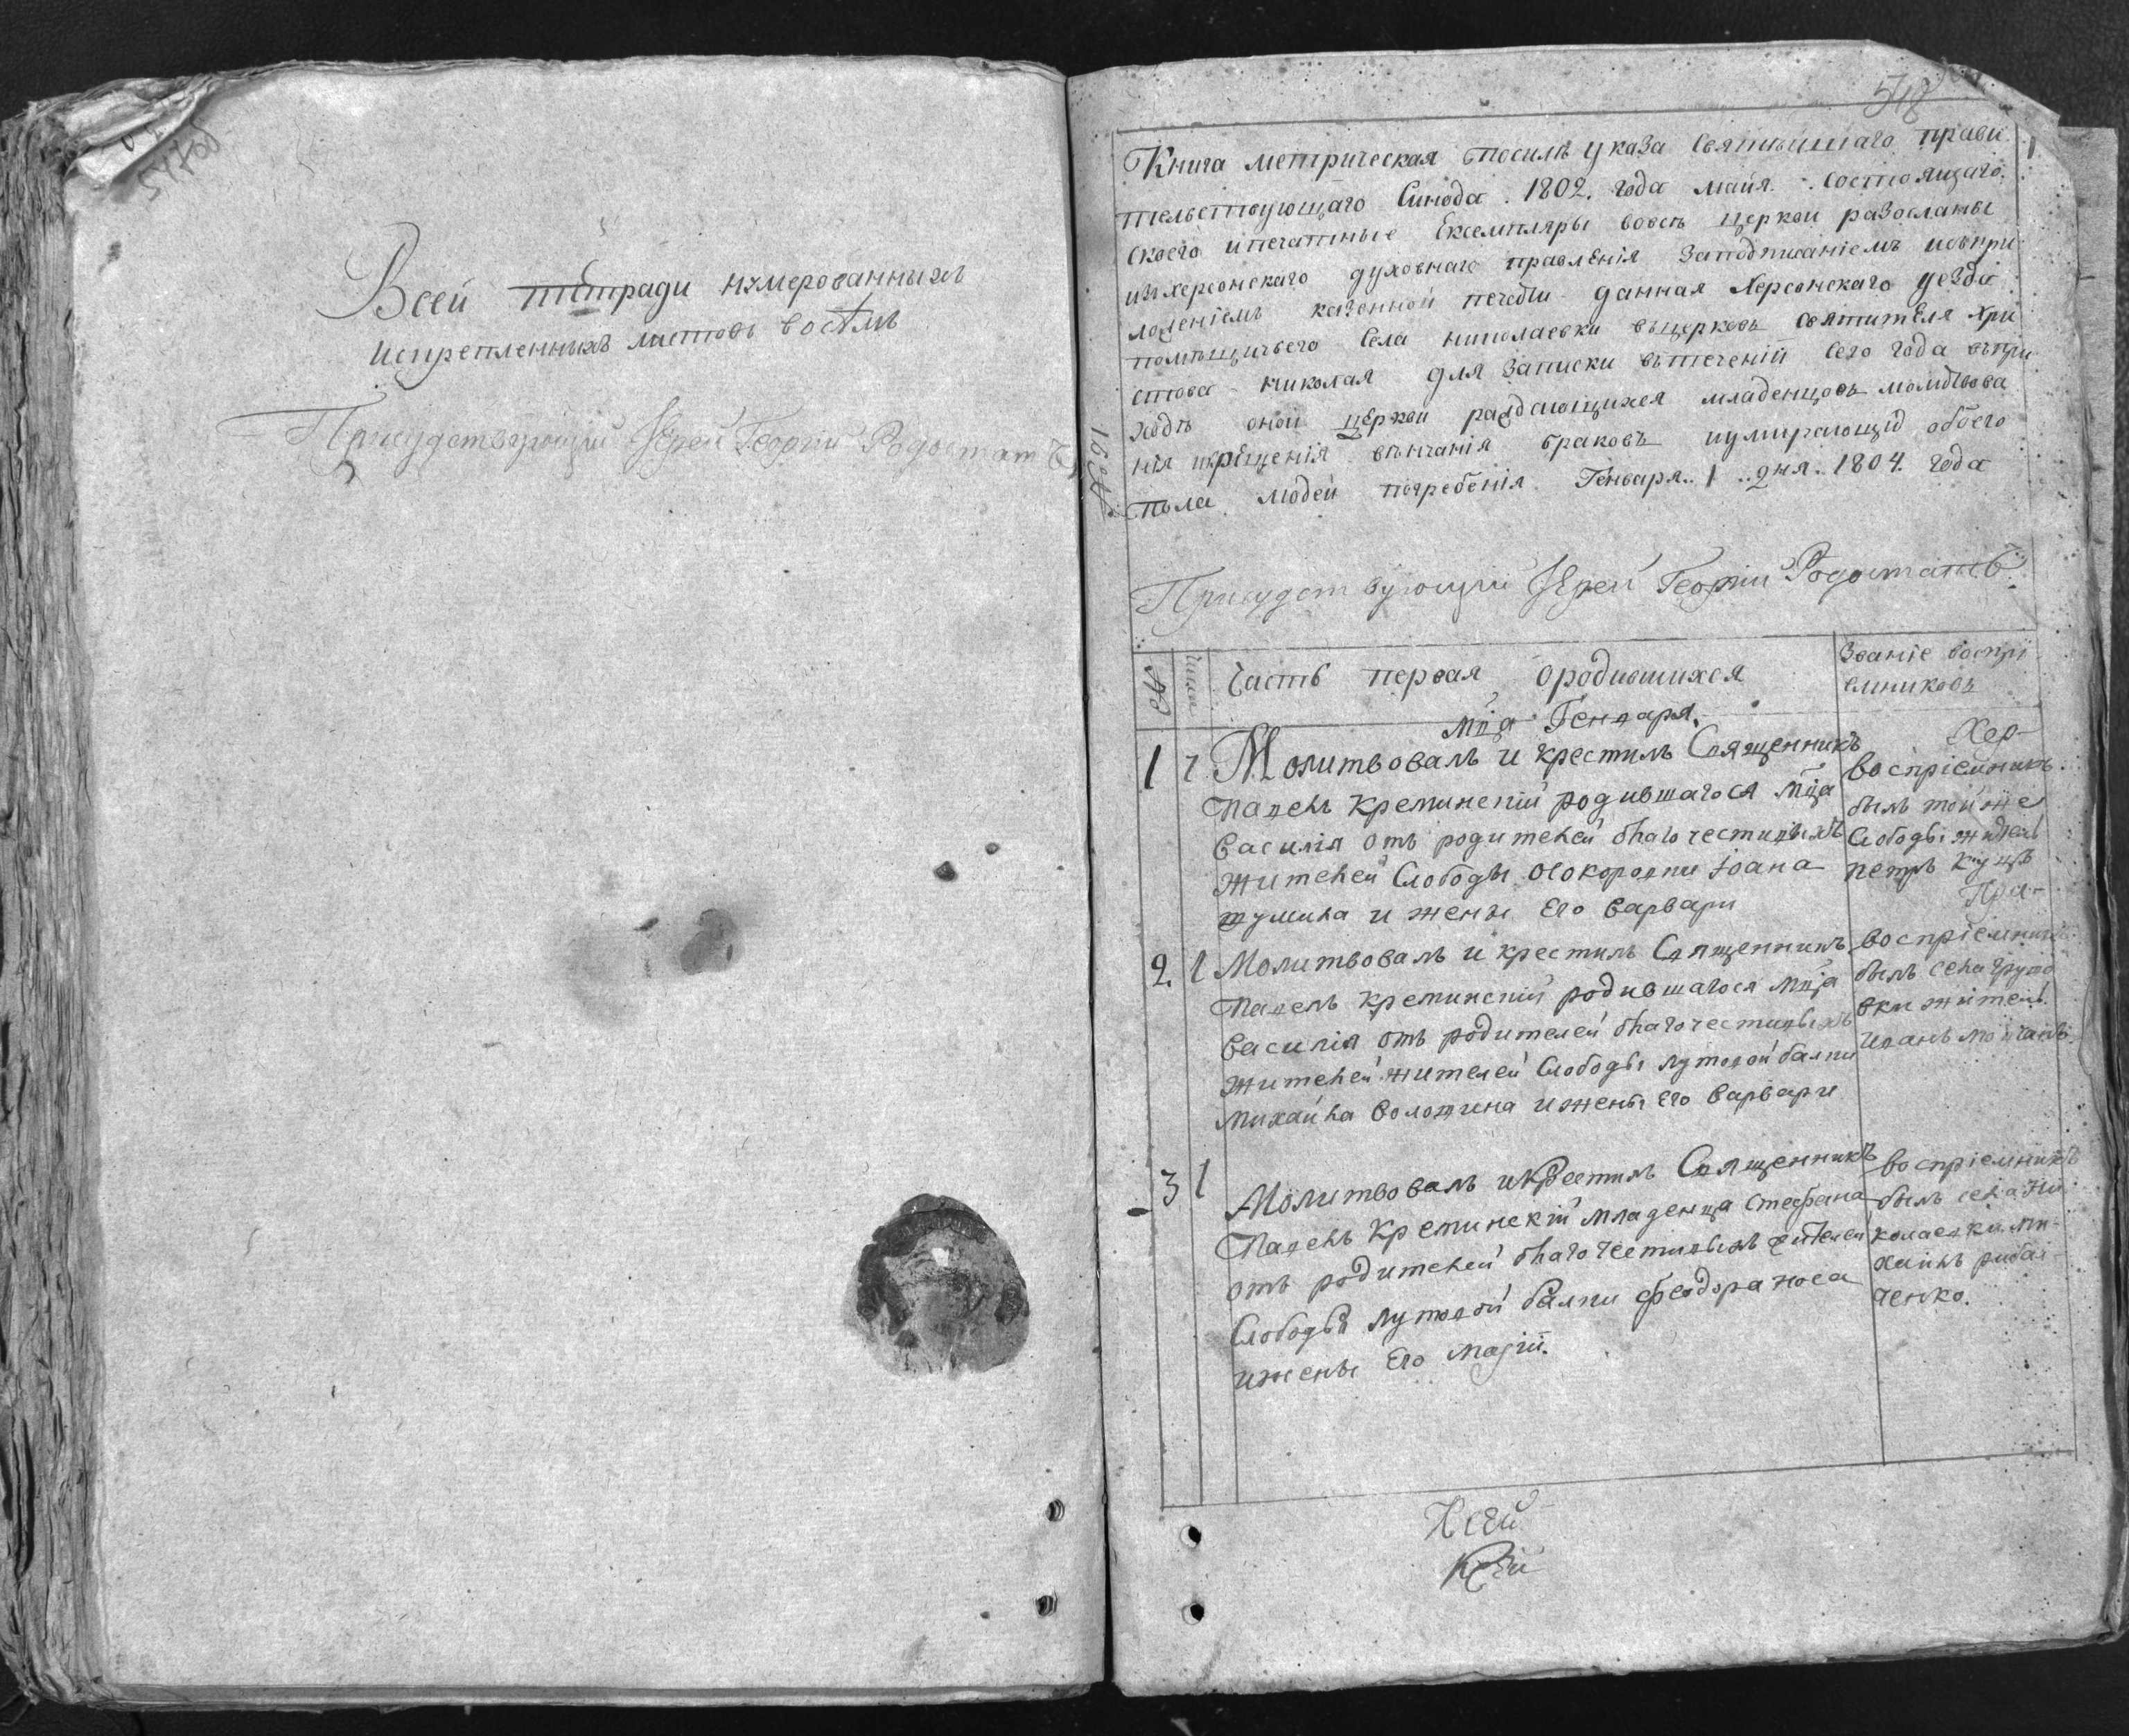 547об
Всей тетради нумерованныхъ
искрепленныхъ листовъ восѣмъ
Присудствующій Іерей Георгій Родостатъ
548
1
Книга метрическая посилѣ указа святѣйшаго прави
тельствующаго Синода . 1802. года майя . состоящаго.
скоего ипечатные Ексемпляры вовсѣ церкви разосланы
изъ херсонскаго духовнаго правленія Заподписаніемъ исъпри
ложеніемъ казенной печети данная Херсонскаго уезда
помѣщичьего Села николаевки въцерковь святителя Хри
стова николая для Записки въ теченій сего года въпри
ходѣ оной церкви раждающихся младенцовъ молитвова
нія икрещенія вѣнчанія браковъ иумирающид обоего
пола людей погребенія Генваря.. 1 ..дня. 1804. года
1804
Присудствующій Іерей Георгій Родостатъ
№
Число
Часть первая ородившихся
Званіе воспрі
емниковъ
мца Генваря.
1 7 Молитвовалъ и крестилъ Священникъ
Павелъ Креминскій родившагося мца
Василія отъ родителей благочестивыхъ
жителей Слободы Осокоровки Іоана
и жены Его Варвари
Хер-
воспріемникъ
былъ той же
Слободы житель
петръ
2 1 Молитвовалъ и крестилъ Священникъ
Павелъ Креминскій родившагося мца
Василія отъ родителей благочестивыхъ
жителей жителей Слободы лутовой балки
Михайла Воложина ижены его Варвари
воспріемникъ
былъ села
вки житель
Иванъ
3 1 Молитвовалъ икрестилъ Священникъ
Павелъ Креминскій младенца Стефана
отъ родителей благочестивыхъ жителей
Слободы лутовой балки феодора носа
ижены Его Маріи.
воспріемникъ
былъ села ни
колаевки ми
хаилъ рибал
ченко.